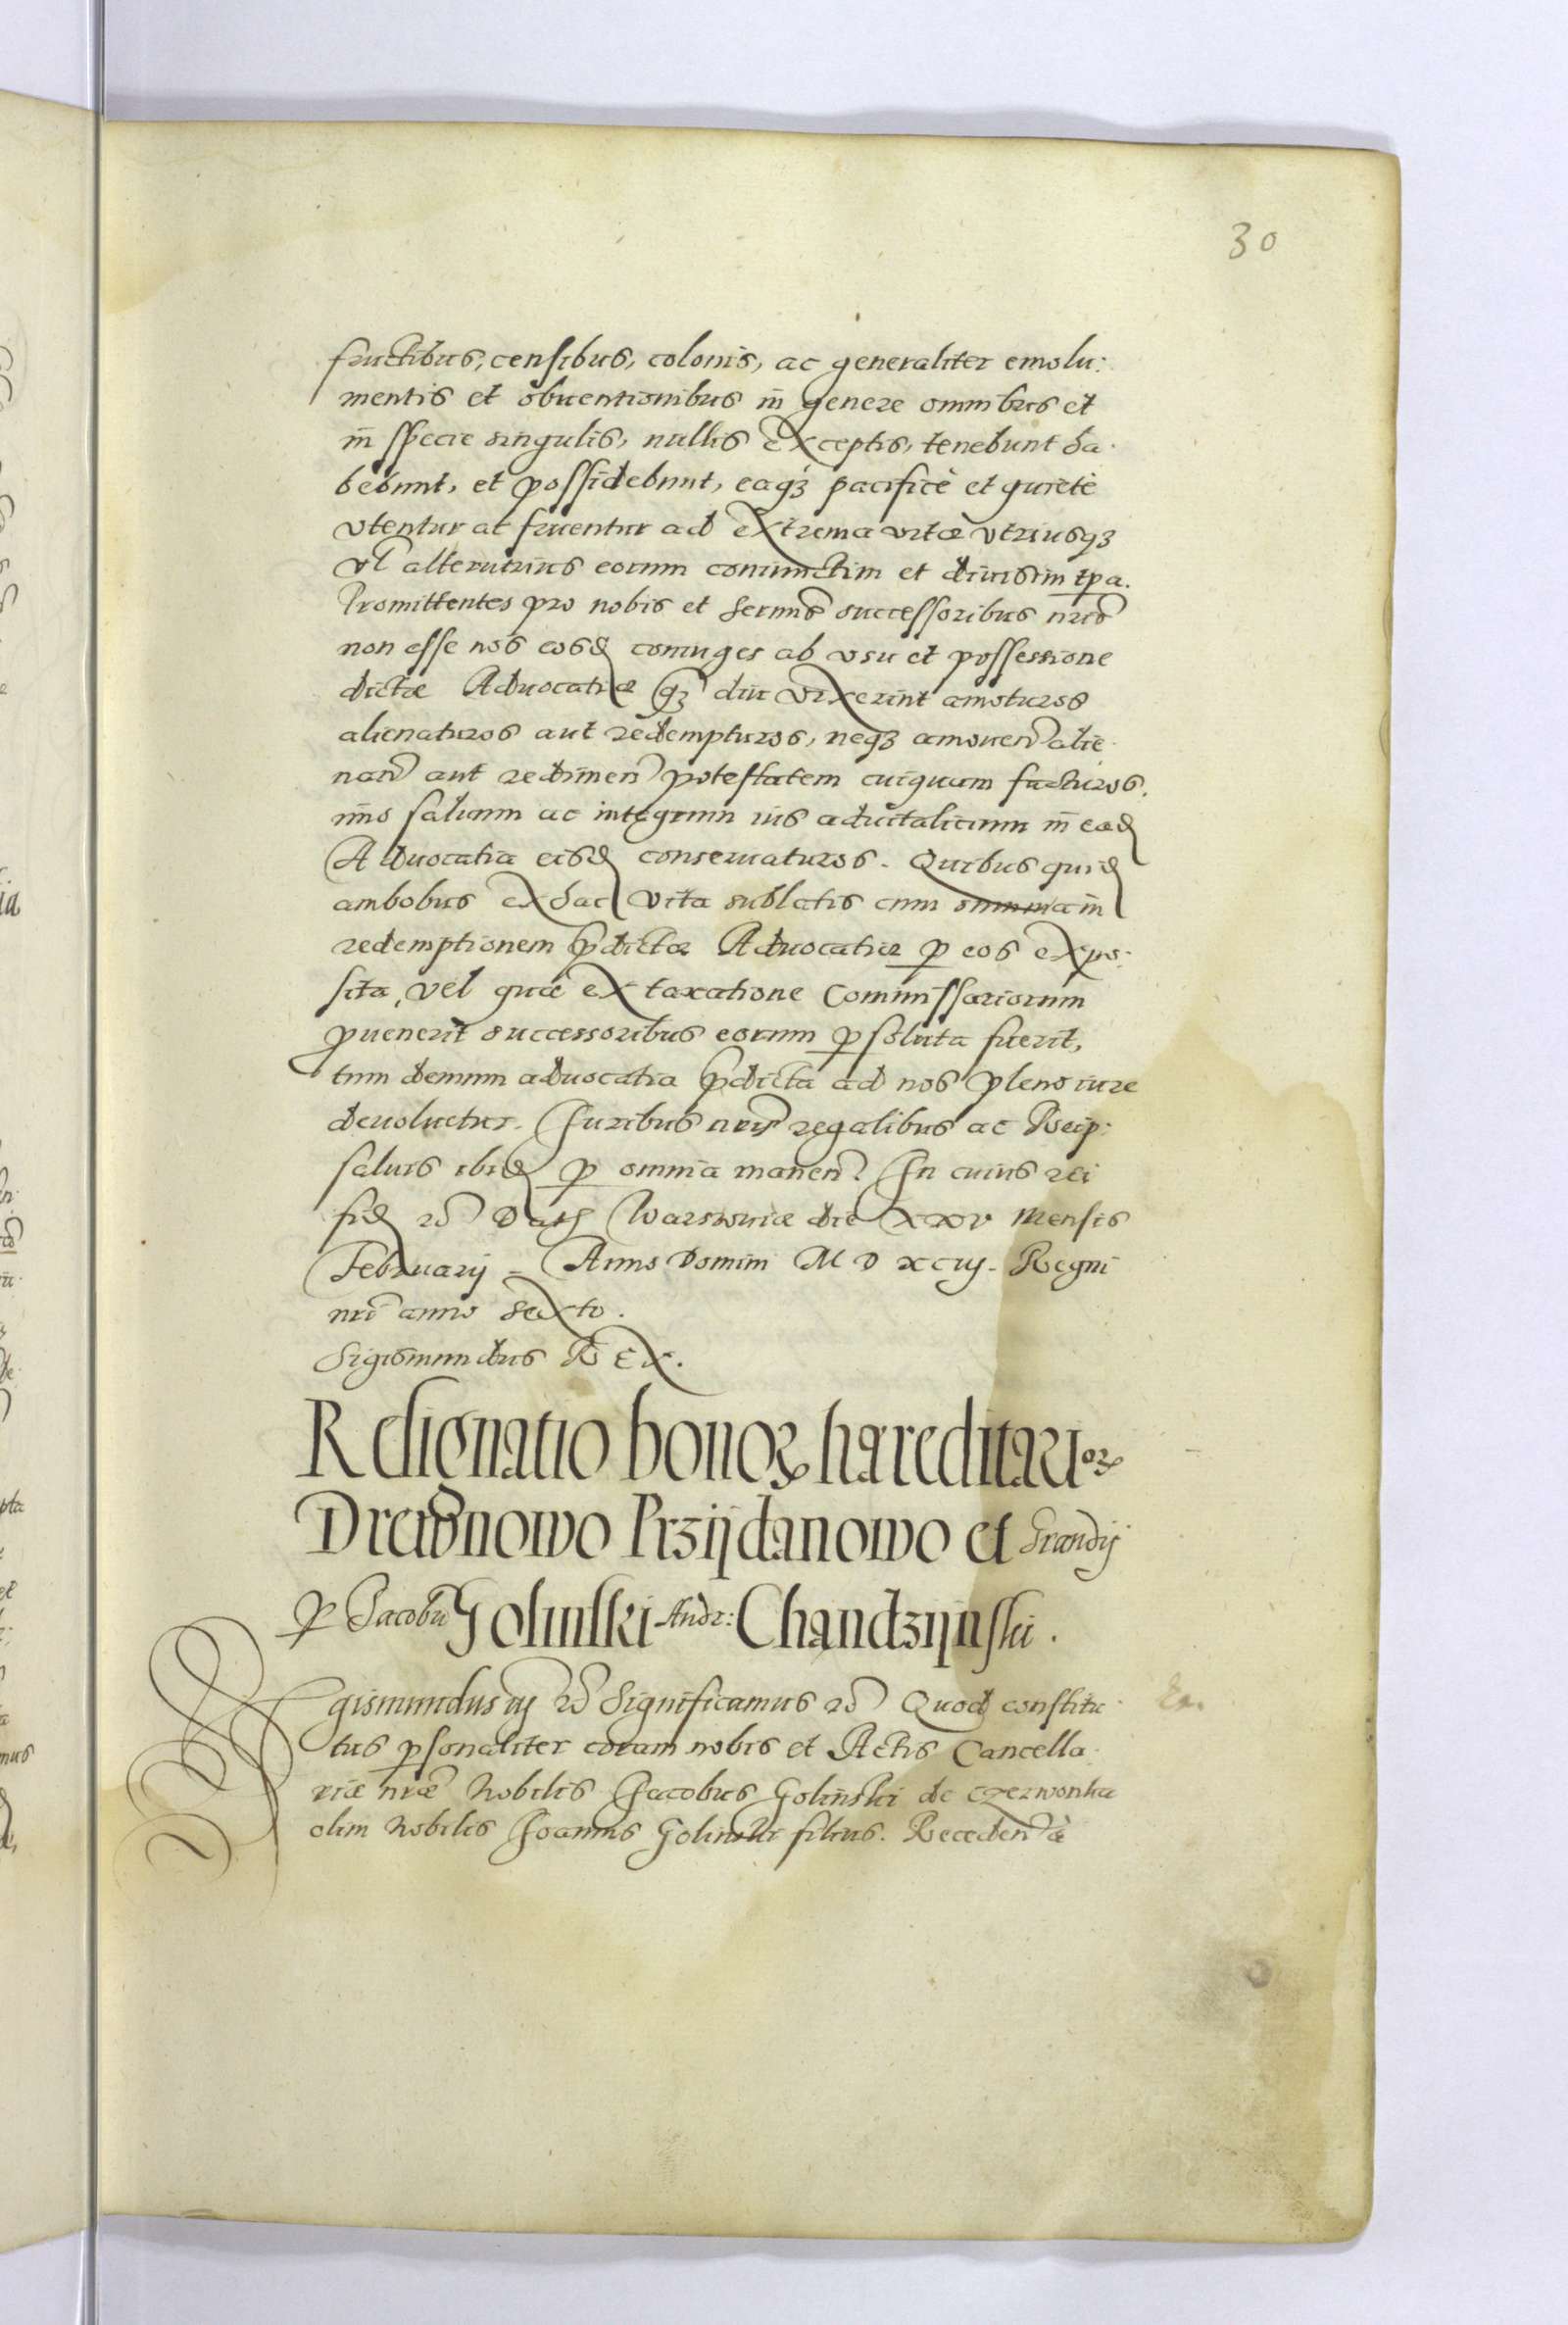 30
fructibus, censibus, colonis, ac generaliter emolu:
mentis et obuentionibus in genere omnibus et
in specie singulis, nullis exceptis, tenebunt ha
bebunt, et possidebunt, eaqꝫ pacificè et quietè
vtentur at fruentur ad extrema vitæ vtriusqꝫ
vl alterutrius eorum coniunctim et diuisim tpa.
Promittentes pro nobis et Sermis successoribus nris
non esse nos eosd coniuges ab vsu et possessione
dictæ Aduocatiæ qꝫ diu vixerint amoturos
alienaturos aut redempturos, neqꝫ amouen alie
nan aut redimen potestatem cuiquam facturos.
imo saluum ac integrum ius aduitalicium in ead
Aduocatia eisd conseruaturos. Quibus quid
ambobus ex hac vita sublatis cum summa in
redemptionem pdictæ Aduocatiæ ꝑ eos expo:
sita, vel quæ ex taxatione Commissariorum
puenerit successoribus eorum ꝑsoluta fuerit,
tum demum aduocatia pdicta ad nos pleno iure
deuoluetur. Juribus nris regalibus ac Reip:
saluis ibid ꝑ omnia manen. In cuius rei
fid Dat Warsouiæ die XXV Mensis
Februarij Anno Domini M D XCIIJ. Regni
nri anno Sexto.
Sigismundus Rex.
Resignatio bonoꝝ hæreditarioꝝ
Drewnowo Przÿdanowo et Grandÿ
ꝑ Jacobu Golinski Andr: Chandzÿnski.
Sigismundus iij Significamus Quod constitu
tus ꝑsonaliter coram nobis et Actis Cancella
riæ nræ Nobilis Jacobus Golinski de Czerwonka
olim Nobilis Joannis Golinski filius. Receden à